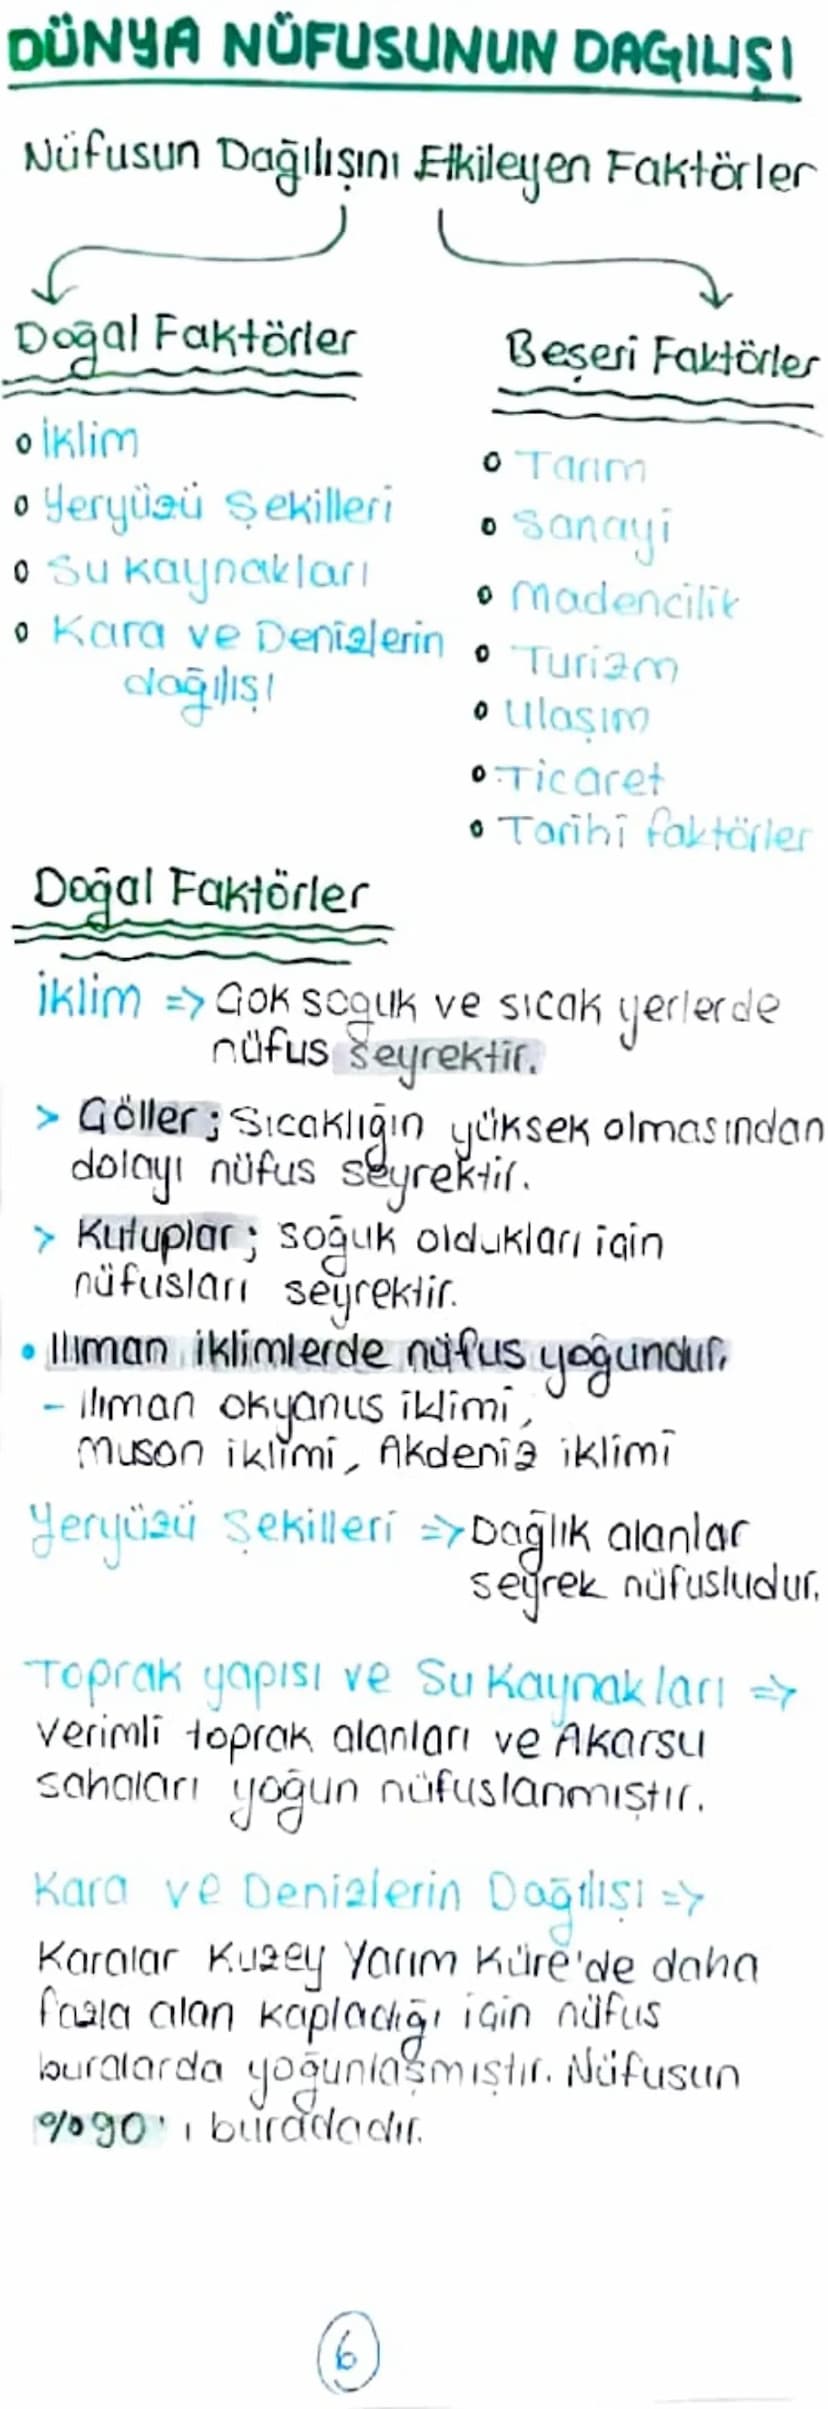 DÜNYA NÜFUSUNUN DAGILISI
Nüfusun Dağılışını Etkileyen Faktörler
Doğal Faktörler
o İklim
o Yeryüzü Şekilleri
o Su kaynakları
o Kara ve Denizlerin
dağılışı
Beşeri Faktörler
o Tarım
o Sanayi
o Madencilik
o Turizm
o Ulaşım
o Ticaret
o Tarihi faktörler
Doğal Faktörler
İklim => Çok soğuk ve sıcak yerlerde
nüfus seyrektir.
> Çöller; Sıcaklığın yüksek olmasından
dolayı nüfus seyrektir.
> Kutuplar; soğuk oldukları için
nüfusları seyrektir.
• Ilıman iklimlerde nüfus yoğundur.
- ılıman okyanus iklimi,
Muson iklimi, Akdeniz iklimi
Yeryüzü Şekilleri => Dağlık alanlar
seyrek nüfusludur.
Toprak yapısı ve Su Kaynakları =>
verimli toprak alanları ve Akarsu
sahaları yoğun nüfuslanmıştır.
Kara ve Denizlerin Dağılışı =>
Karalar Kuzey Yarım Küre'de daha
fazla alan kapladığı için nüfus
buralarda yoğunlaşmıştır. Nüfusun
%90'ı buradadır.
6